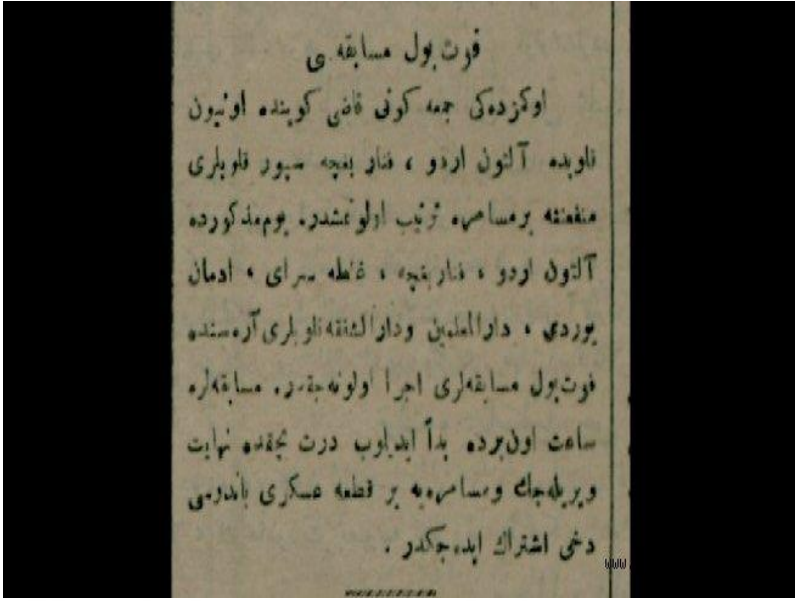 فوت بول مسابقه سی
اوكمزده‌كی جمعه كونی قاضی كوینده اونیون
قلوبده آلتون اردو ، فنار بغچه سپور قلوبلری
منفعتنه برمسامره ترتیب اولونمشدر. یوم‌مذكورده
آلتون اردو ، فنار بغچه ، غلطه سرای ، ادمان
یوردی ، دارالمعلمین ودارالشفقه قلوبلری آره‌سنده
فوت‌بول مسابقه‌لری اجرا اولونه‌جقدر. مسابقه‌لره
ساعت اون‌برده بدأ ایدیلوب درت بچقده نهایت
ویریله‌جك ومسامره‌یه بر قطعه عسكری باندوسی
دخی اشتراك ایده‌جكدر .
www.